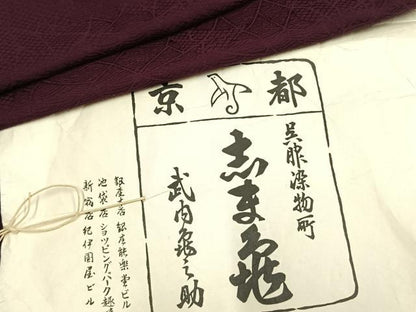 京都
呉服染物所
志ま亀
武内亀之助
銀座店 銀座能楽堂ビル
池袋店 ショッピングパーク
新宿店 紀伊國屋ビル